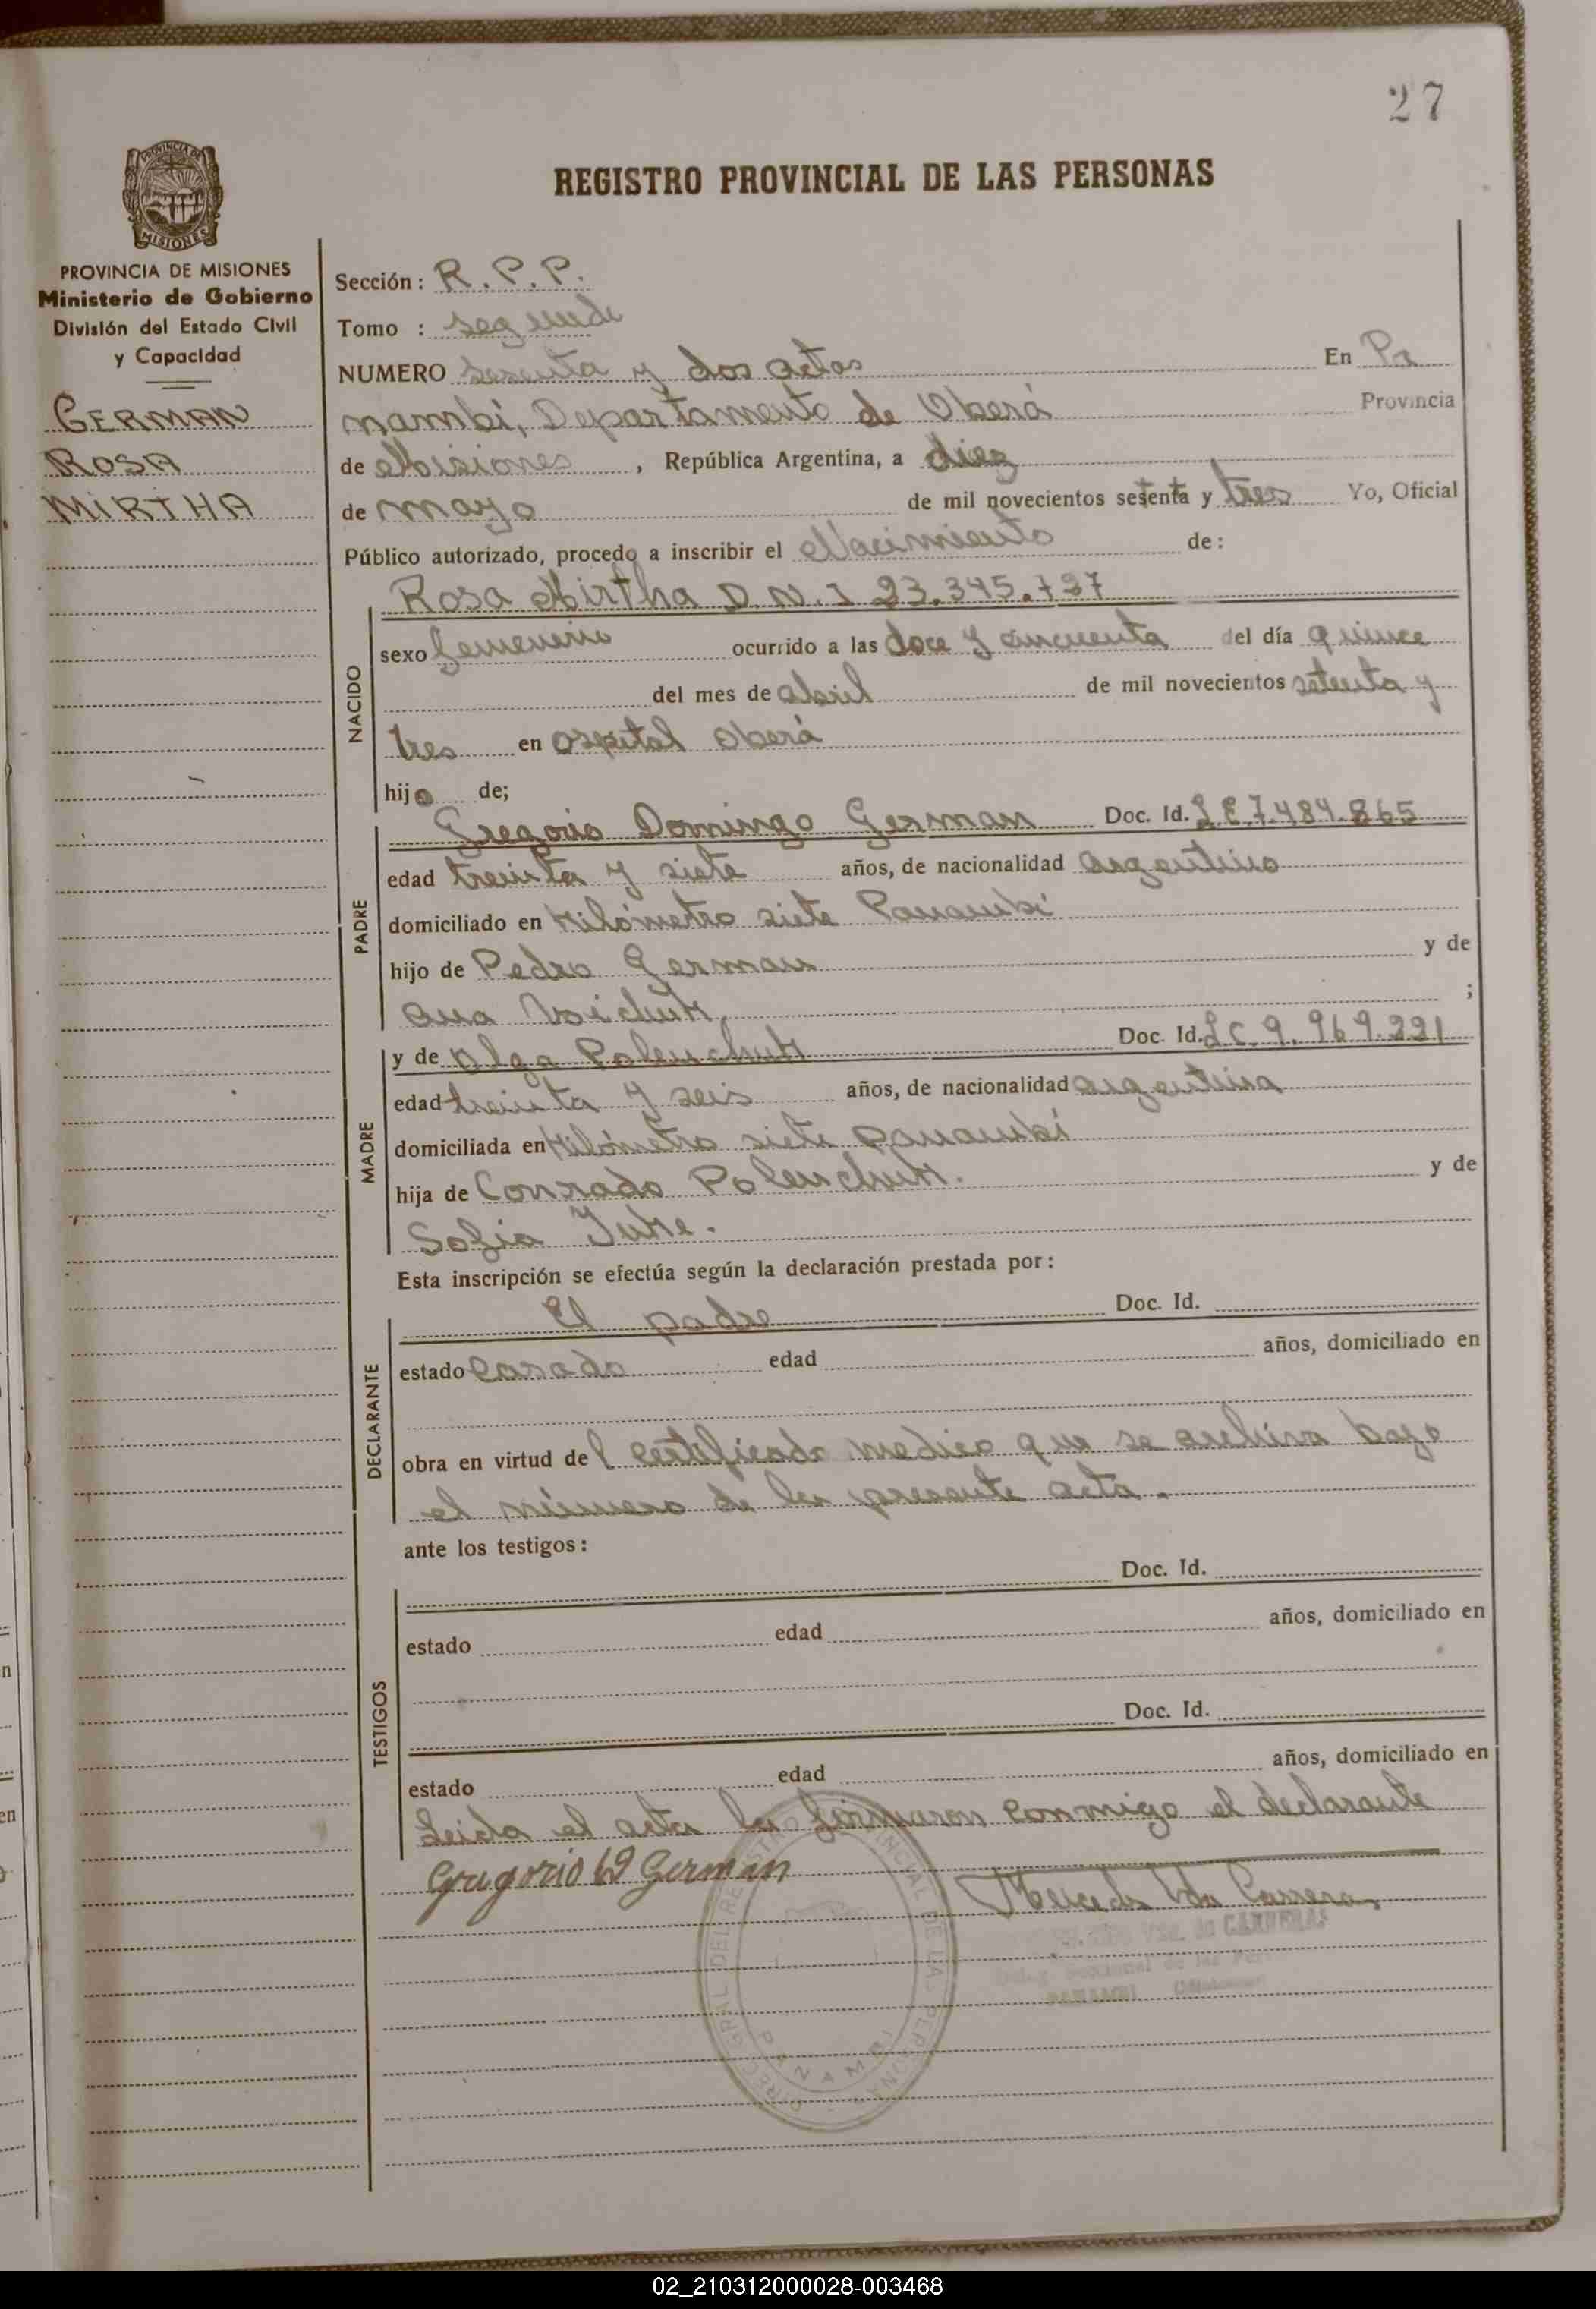 27
PROVINCIA DE MISIONES
REGISTRO PROVINCIAL DE LAS PERSONAS
PROVINCIA DE MISIONES
Ministerio de Gobierno
División del Estado Civil
y Capacidad
GERMAN
ROSA
MIRTHA
Sección: R.P.P.
Tomo : segundo
NUMERO sesenta y dos actas En Pa
nambí, Departamento de Oberá Provincia
de Misiones, República Argentina, a diez
de mayo de mil novecientos setenta y tres Yo, Oficial
Público autorizado, procedo a inscribir el Nacimiento de:
Rosa Mirtha D.N.I 23.345.737
NACIDO
sexo femenino ocurrido a las doce y cincuenta del día quince
del mes de abril de mil novecientos setenta y
tres en ospital Oberá
hija de;
PADRE
Gregorio Domingo German Doc. Id. L E 7.484.865
edad treinta y siete años, de nacionalidad argentino
domiciliado en Kilómetro siete Panambí
hijo de Pedro German y de
Ana Voichuk ;
MADRE
y de Olga Polenchuk Doc. Id. L C 9.969.221
edad treinta y seis años, de nacionalidad argentina
domiciliada en Kilómetro siete Panambí
hija de Conrado Polenchuk. y de
Sofia Juke.
Esta inscripción se efectúa según la declaración prestada por:
DECLARANTE
El padre Doc. Id.
estado Casado edad años, domiciliado en
obra en virtud del certificado medico que se archiva bajo
el número de la presente acta.
ante los testigos:
TESTIGOS
Doc. Id.
estado edad años, domiciliado en
Doc. Id.
estado edad años, domiciliado en
Leida el acta la firmaron conmigo el declarante
Gregorio D German
Mercedes Vda Carreras
Vda. de CARRERAS
PANAMBI
PANAMBI
02_210312000028-003468